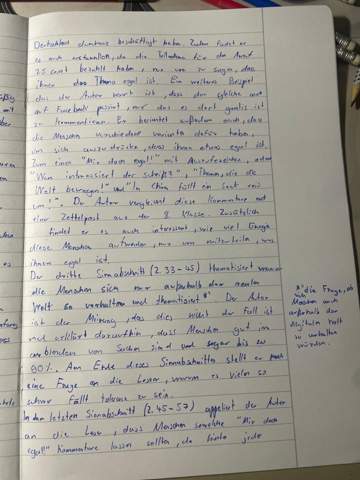 Deutschland daraus beschäftigt haben. Zudem findet er
es auch erstaunlich, da die Teilnehmer für den Anruf
25 cent bezahlt haben, nur um zu sagen, das
ihnen das Thema egal ist. Ein weiteres Beispiel
das der Autor nennt ist, dass das gleiche auch
auf Facebook passiert, nur das es dort gratis ist
zu kommentieren. Er berichtet außerdem auch, das
die Menschen verschiedene Varianten dafür haben,
um sich auszudrücken, dass ihnen etwas egal ist.
Zum einen "Mir doch egal!" mit Ausrufezeichen, oder
"Wen interessiert der scheiß?", "Themen, die die
Welt bewegen!" und "In China fällt ein Sack reis
um!". Der Autor vergleicht diese Kommentare mit
einer Zettelpost aus der 8 Klasse. Zusätzlich
findet er es auch interessant, wie viel Energie
diese Menschen aufwenden, nur um mitzuteilen, was
ihnen egal ist.
Der dritte Sinnabschnitt (Z.33-45) thematisiert
die Menschen sich nur außerhalb der realen
Welt so verhalten und thematisiert *¹ Der Autor
ist der Meinung, das dies nicht der Fall ist
und erklärt daraufhin, dass Menschen gut im
ausblenden von Sachen sind und sogar bis zu
90%. Am Ende dieses Sinnabschnittes stellt er noch
eine Frage an die Leser, warum es vielen so
schwer fällt tolerant zu sein.
In den letzten Sinnabschnitt (Z.45-57) appeliert der Autor
an die Leser, dass Menschen "Mir doch
egal!" Kommentare lassen sollten, da jede
*¹ die Frage, ob
sich
Menschen auch
außerhalb der
digitalen Welt
so verhalten
würden.